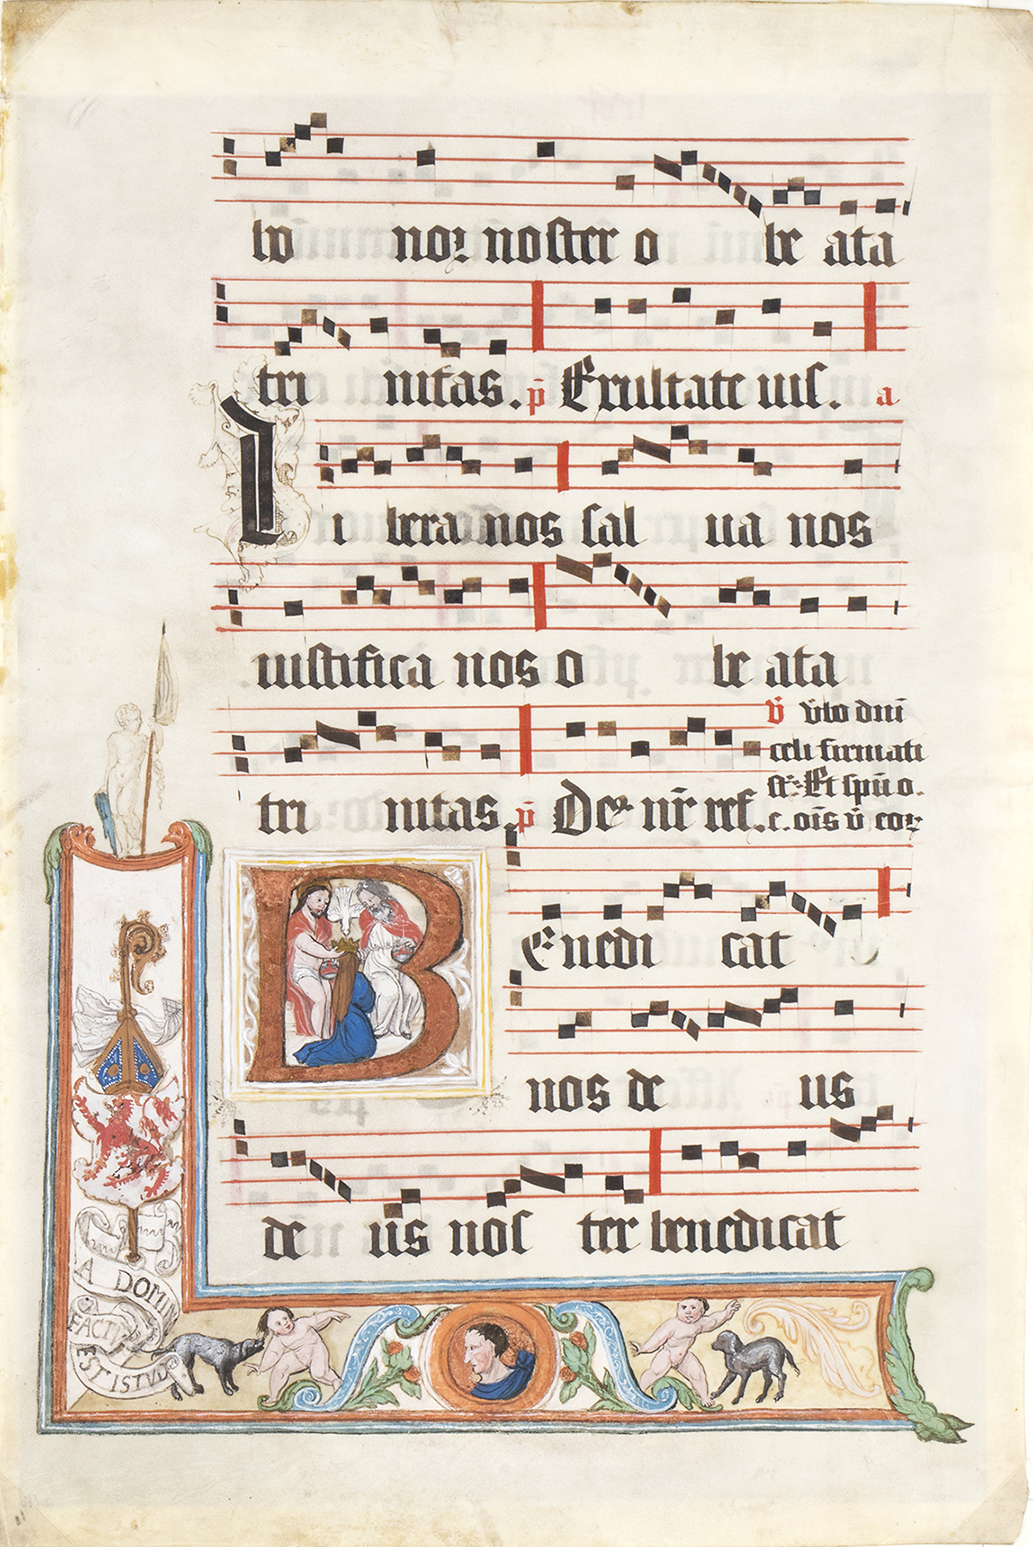 bo nor noster o be ata
tri nitas. p̄ Exultate uis. a
L i bera nos sal ua nos
iustifica nos o be ata
v̄ v̄bo dn̄i
tri nitas p̄ De9 nr̄ ref.
celi firmati
st: Et spū o.
e. oīs v̄ eor
B Enedi cat
nos de us
de us nos ter benedicat
A DOMIN
FACTV
EST ISTVD